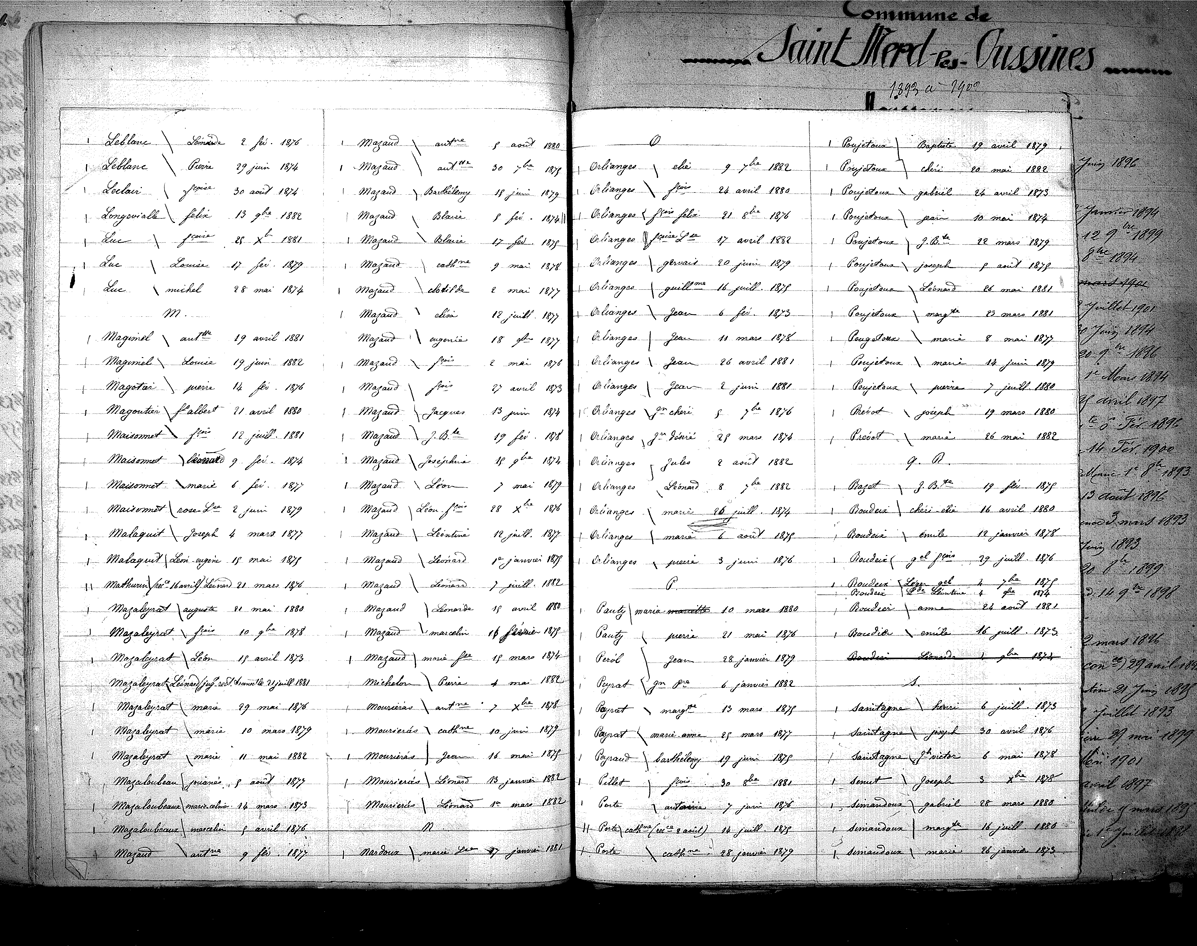 Commune de
Saint Merd-les-Oussines
1893 à 1900
Leblanc Léonarde 2 fév. 1876
Leblanc Pierre 29 juin 1874
Leclair fçoise 30 août 1874
Longevialle félix 13 9bre 1882
Luc fçoise 25 Xb 1881
Luc Louise 17 fév. 1879
Luc michel 28 mai 1874
M.
Maginel anttte 19 avril 1881
Maginel Louise 19 juin 1882
Magotar pierre 14 fév. 1876
Magoutier albert 21 avril 1880
Maisonnet fçois 12 juill. 1881
Maisonnet Léonard 9 fév. 1874
Maisonnet marie 6 fév. 1877
Maisonnet rose Lse 2 juin 1879
Malaguit Joseph 4 mars 1877
Malaguit Léon eugène 15 mai 1875
Mathurin (rec 16 avril) Léonard 21 mars 1876
Mazaleyrat auguste 21 mai 1880
Mazaleyrat fçois 10 9bre 1878
Mazaleyrat Léon 15 avril 1873
Mazaleyrat Léonard 21 juill 1881
Mazaleyrat marie 29 mai 1876
Mazaleyrat marie 10 mars 1879
Mazaleyrat marie 11 mai 1882
Mazaloubeau 5 août 1877
Mazaloubeaux 14 mars 1873
Mazaloubeaux marcelin 5 avril 1876
Mazaud antne 9 fév. 1877
Mazaud antne 5 août 1880
Mazaud anttte 30 7bre 1875
Mazaud Barthélémy 15 juin 1879
Mazaud Blaise 5 fév. 1874
Mazaud Blaise 17 fév. 1875
Mazaud cathne 9 mai 1878
Mazaud clotilde 2 mai 1877
Mazaud élisa 12 juill. 1877
Mazaud eugénie 18 9bre 1877
Mazaud fçois 2 mai 1876
Mazaud fçois 27 avril 1873
Mazaud Jacques 13 juin 1874
Mazaud J. Bte 19 fév. 1878
Mazaud Joséphine 15 9bre 1874
Mazaud Léon 7 mai 1879
Mazaud Léon fçois 28 Xbre 1876
Mazaud Léontine 12 juill. 1877
Mazaud Léonard 1er janvier 1875
Mazaud Léonard 7 juill. 1882
Mazaud Léonarde 15 avril 1880
Mazaud marcelin 16 février 1875
Mazaud marie fse 15 mars 1874
Michelon Pierre 4 mai 1882
Mouriéras antne 7 Xbre 1878
Mouriéras cathne 10 juin 1879
Mouriéras Jean 16 mai 1875
Mouriéras Léonard 13 janvier 1882
Mouriéras Léonard 1er mars 1882
N
Nardoux marie Lse 17 janvier 1881
O
Orlianges élie 9 7bre 1882
Orlianges fçois 24 avril 1880
Orlianges fçois félix 21 8bre 1876
Orlianges fçoise Lse 17 avril 1882
Orlianges gervais 20 juin 1879
Orlianges guillme 16 juill. 1875
Orlianges Jean 6 fév. 1873
Orlianges Jean 11 mars 1878
Orlianges Jean 26 avril 1881
Orlianges Jean 2 juin 1881
Orlianges jn chéri 5 7bre 1876
Orlianges jn désiré 25 mars 1874
Orlianges Jules 2 août 1882
Orlianges Léonard 8 7bre 1882
Orlianges marie 26 juill. 1874
Orlianges marie 6 août 1875
Orlianges pierre 3 juin 1876
P.
Pauty marie marcelle 10 mars 1880
Pauty pierre 21 mai 1876
Pérol Jean 28 janvier 1879
Peyrat jn pre 6 janvier 1882
Peyrat margte 13 mars 1875
Peyrat marie anne 25 mars 1877
Peyraud barthélémy 19 juin 1875
Pillot fçois 30 8bre 1881
Porte antoine 7 juin 1876
Porte cathne (rec 2 août) 14 juill. 1875
Porte cathne 28 janvier 1879
Poujetoux Baptiste 19 avril 1879
Poujetoux chéri 20 mai 1882
Poujetoux gabriel 24 avril 1873
Poujetoux jean 10 mai 1874
Poujetoux J. Bte 22 mars 1879
Poujetoux joseph 5 août 1875
Poujetoux Léonard 26 mai 1881
Poujetoux margte 23 mars 1881
Poujetoux marie 8 mai 1877
Poujetoux marie 14 juin 1879
Poujetoux pierre 7 juill. 1880
Prévot joseph 19 mars 1880
Prévot marie 26 mai 1882
Q. R.
Bazet J. Bte 19 fév. 1875
Roudeix chéri élie 16 avril 1880
Roudeix émile 12 janvier 1878
Roudeix gel fçois 29 juill. 1876
Roudeix Léon gel 4 7bre 1875
Roudeix Léontine 4 9bre 1874
Roudeix anne 24 août 1881
Roudeix émile 16 juill. 1873
Roudeix Léonarde 4 9bre 1874
S.
Saintagne henri 6 juill. 1873
Saintagne joseph 30 avril 1876
Saintagne victor 6 mai 1878
Senut Joseph 3 Xbre 1878
Simandoux gabriel 28 mars 1880
Simandoux margte 16 juill. 1880
Simandoux marie 26 janvier 1873
Juin 1896
Janvier 1894
12 9bre 1899
8bre 1894
mars 1901
Juillet 1901
Juin 1894
20 9bre 1896
1er Mars 1894
avril 1897
Fév. 1896
14 Fév. 1900
1er 8bre 1893
13 août 1896
3 mars 1893
Juin 1893
20 8bre 1899
14 9bre 1898
2 mars 1896
29 avril
21 Juin 1895
Juillet 1893
29 mai 1899
1901
avril 1897